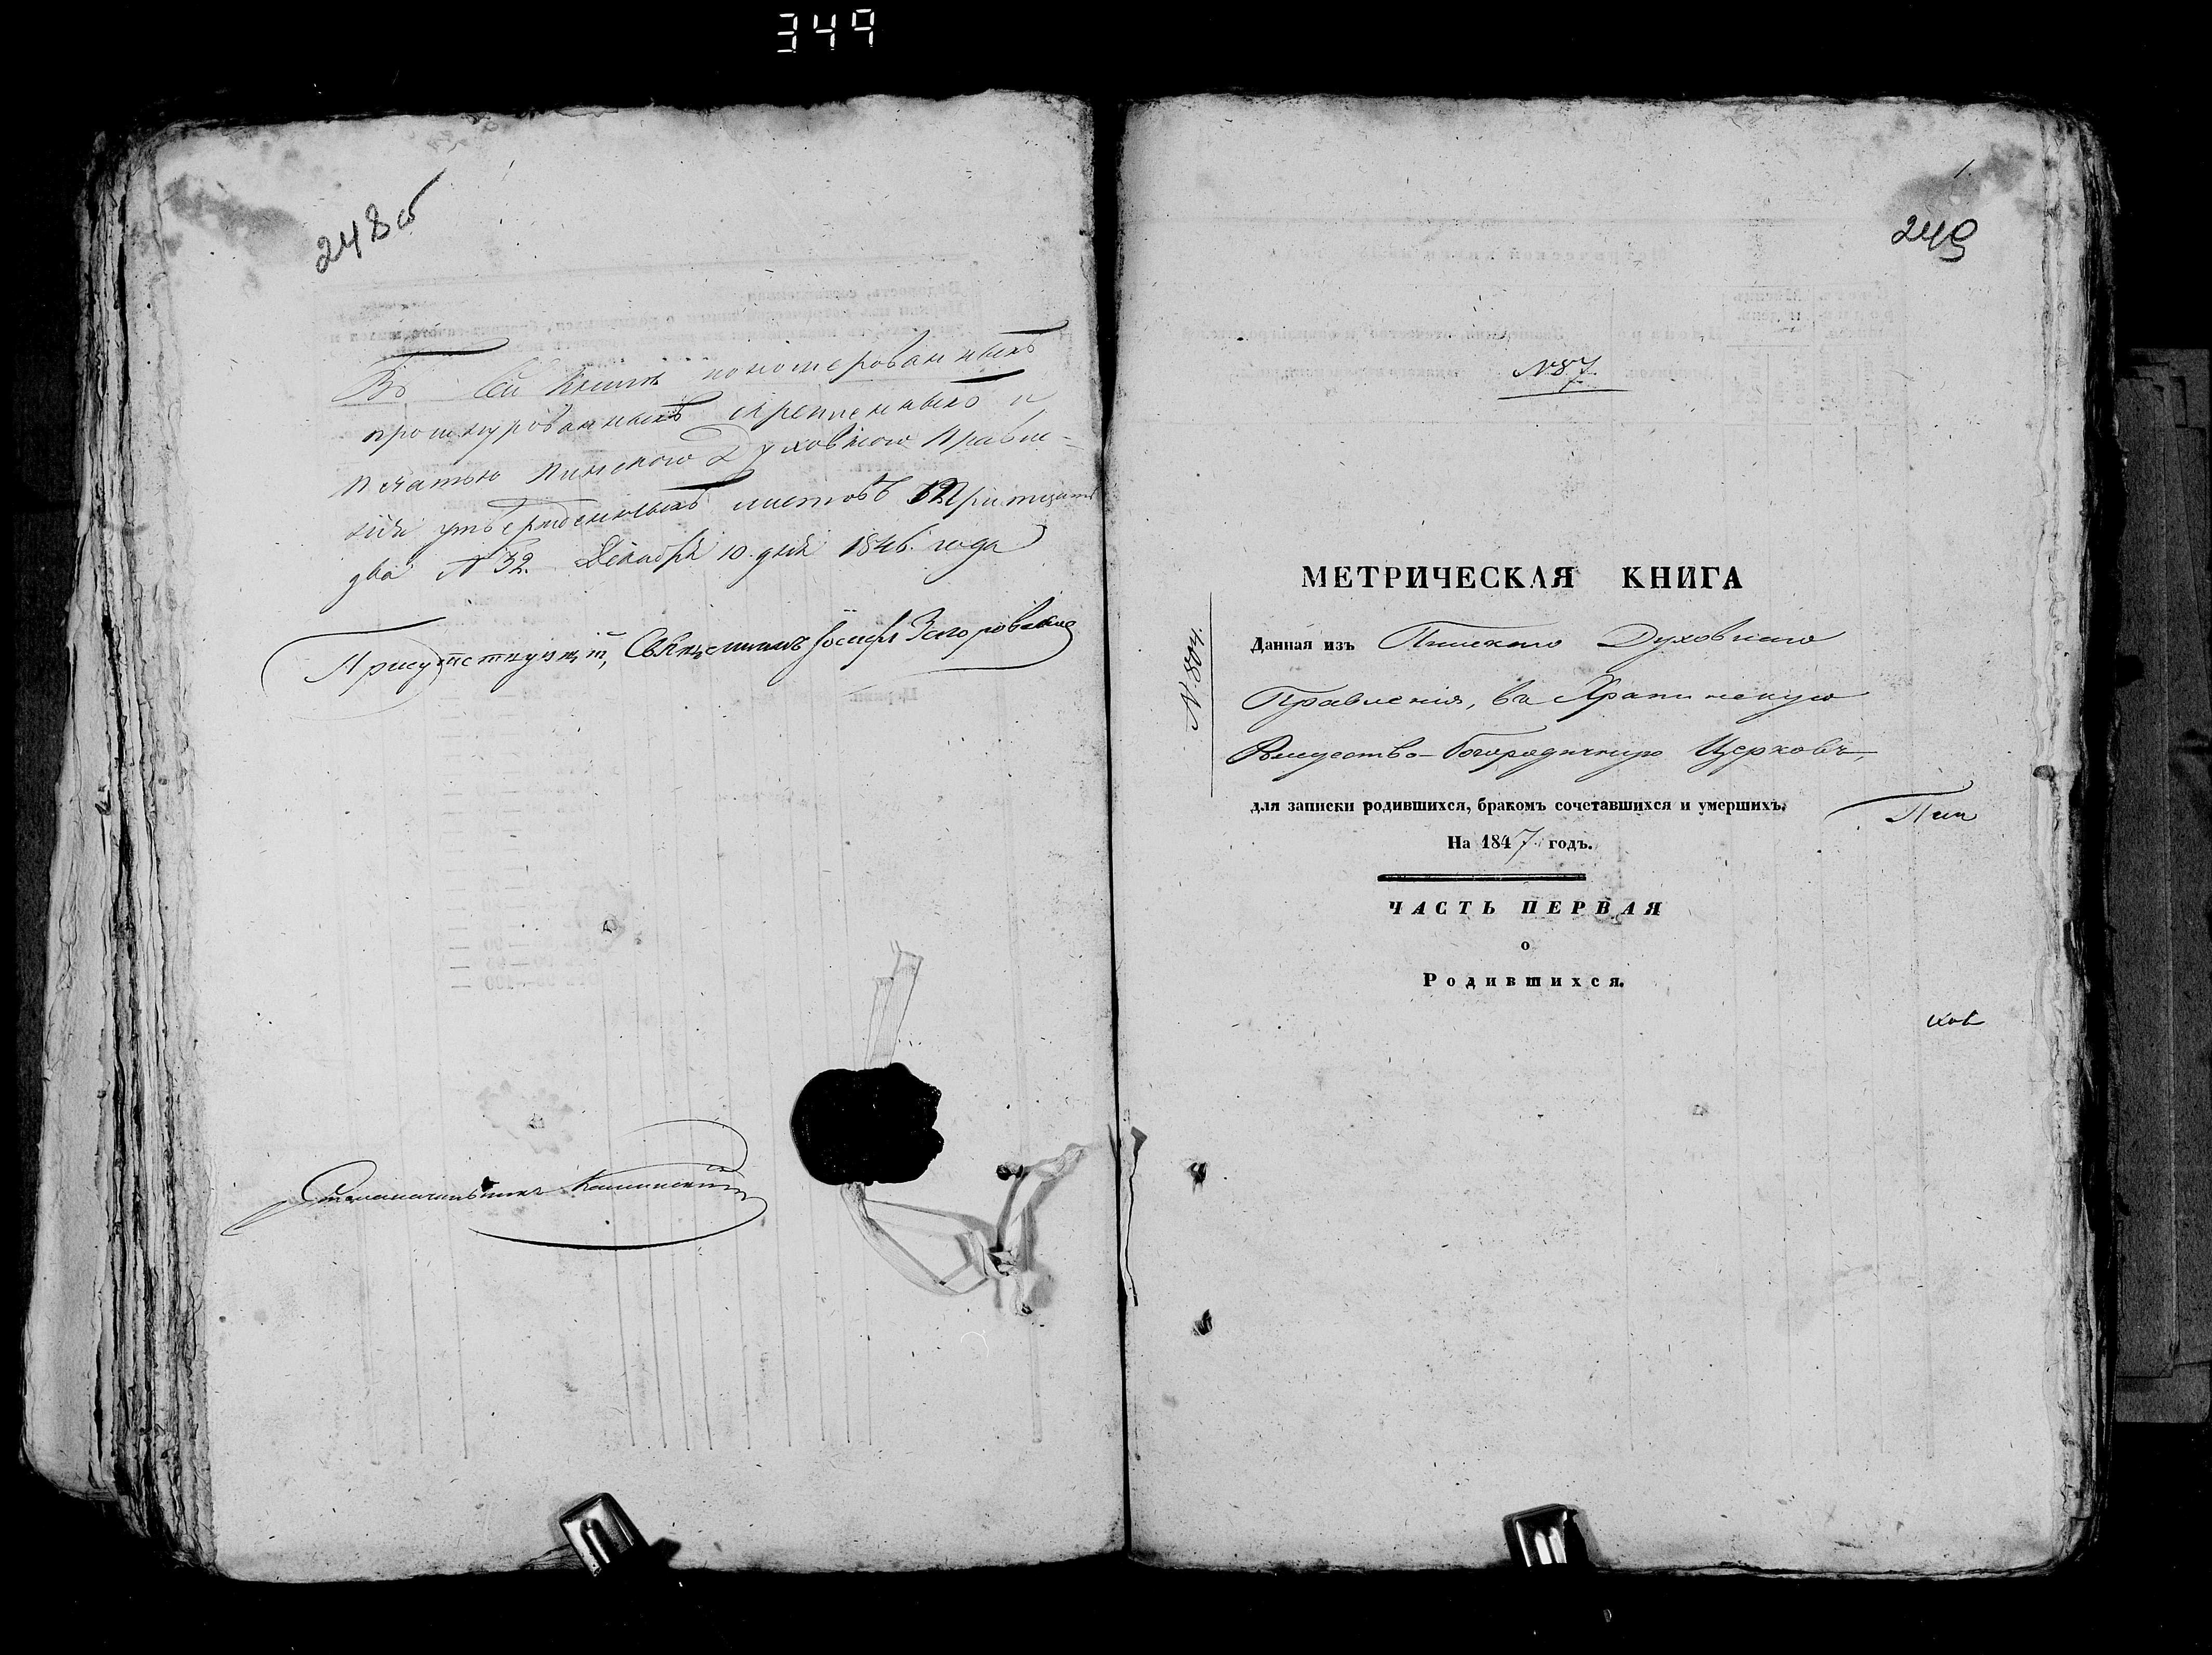 349
248об
Въ Сей Книгѣ пономерованныхъ
прошнурованныхъ скрепленныхъ и
печатью Пинскаго Духовнаго Правле-
нія утвержденныхъ листовъ Тритцать
два № 32. Декабря 10 дня 1846 года
Присутствующій, Священникъ Іосифъ
Столоначальникъ Калинскій
1.
249
№ 87.
МЕТРИЧЕСКАЯ КНИГА
№ 804.
Данная изъ Пинскаго Духовнаго
Правленія, въ Храпинскую
Рождество-Богородичную Церковь,
для записки родившихся, бракомъ сочетавшихся и умершихъ.
Пин
На 1847 годъ.
ЧАСТЬ ПЕРВАЯ
о
Родившихся.
ков